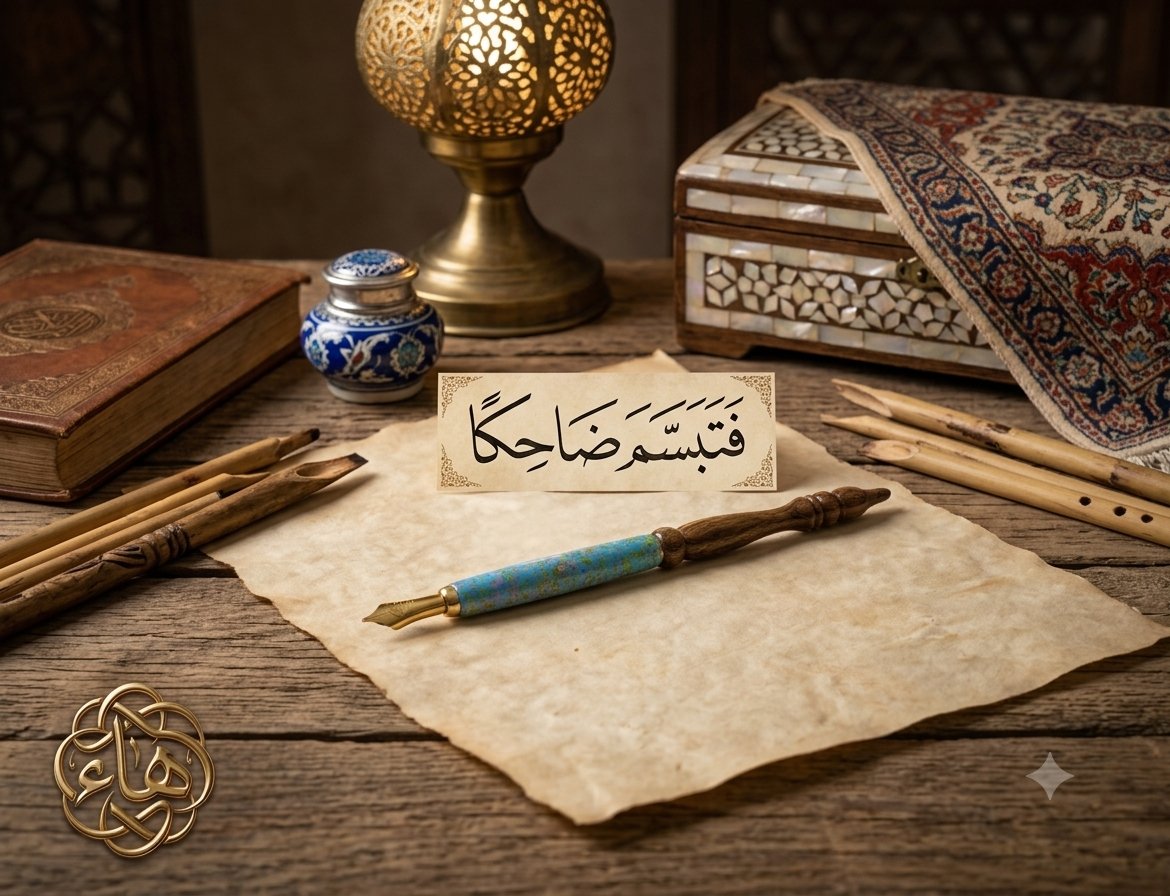 فَتَبَسَّمَ ضَاحِكًا
هاء